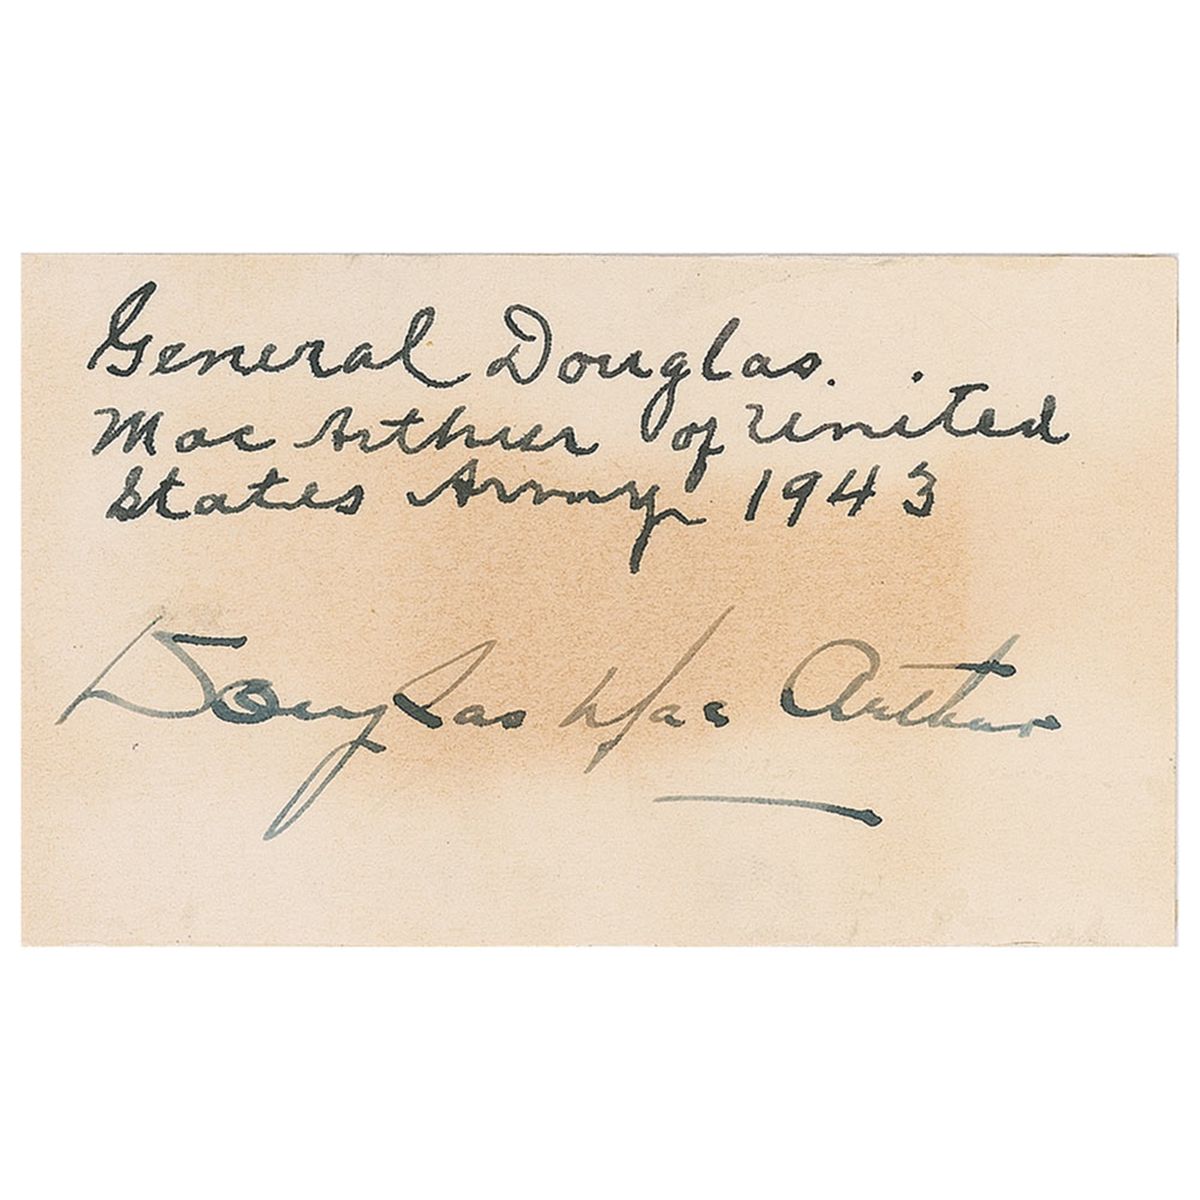 General Douglas.
Mac Arthur of United
States Army 1943
Douglas MacArthur